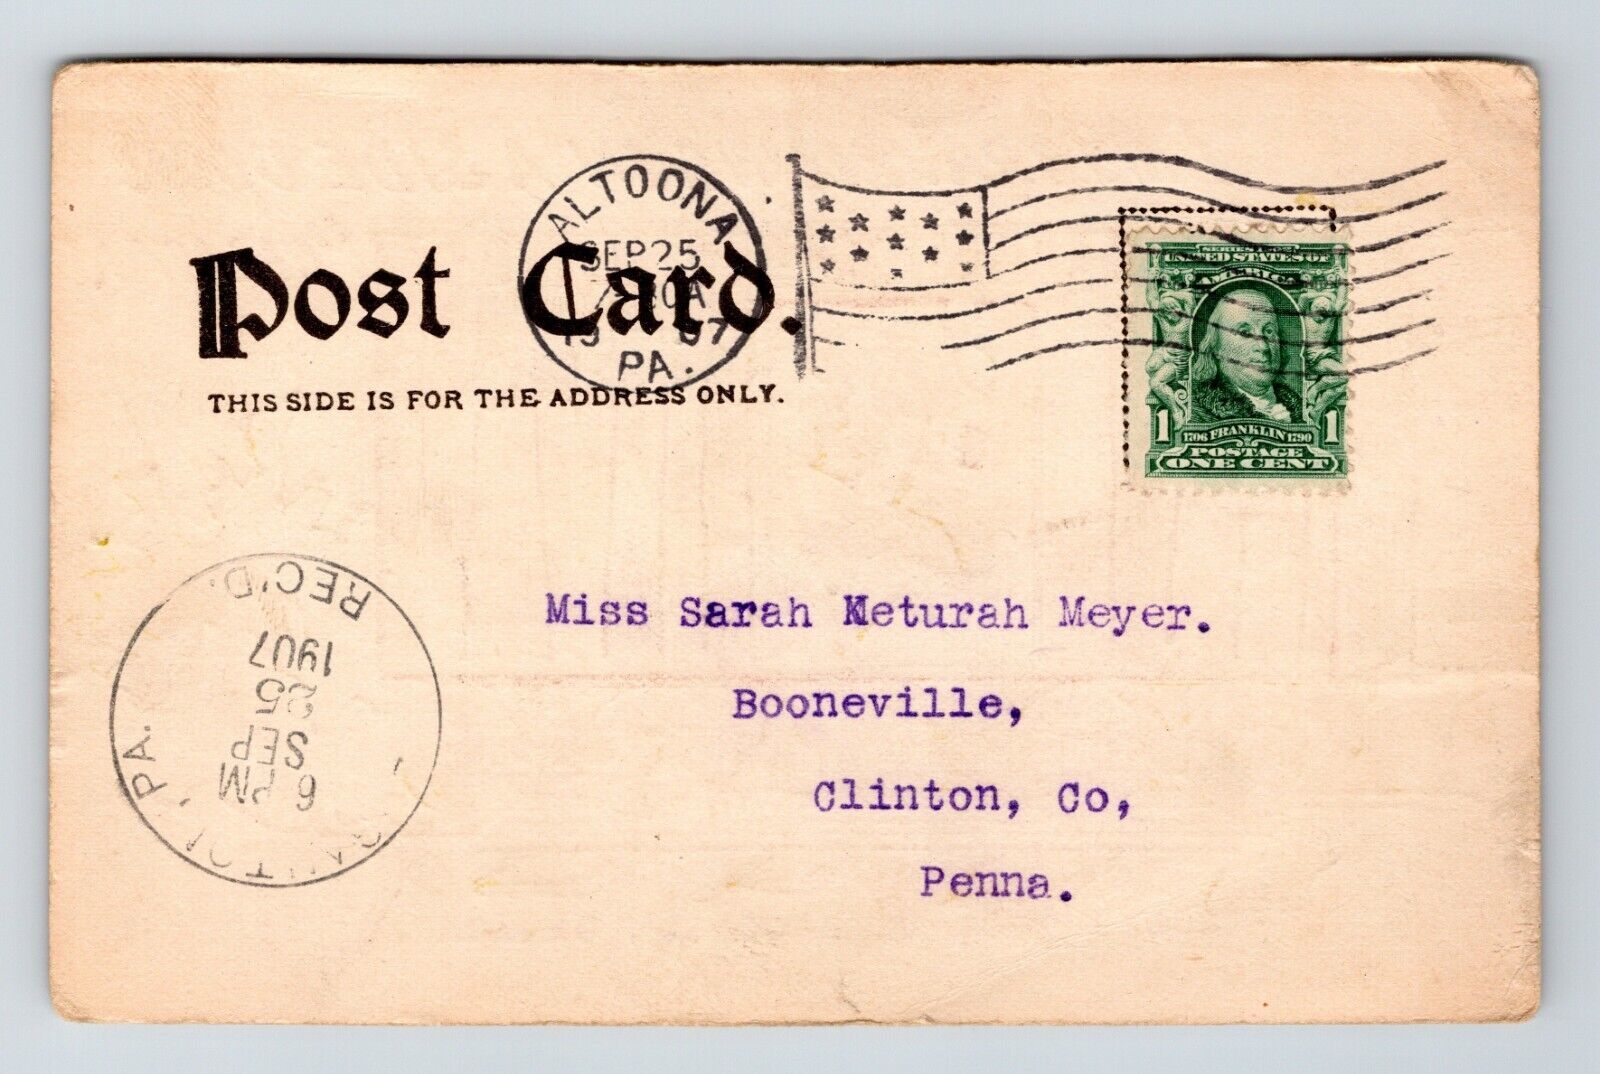 ALTOONA
SEP 25
1907
PA.
Post Card.
THIS SIDE IS FOR THE ADDRESS ONLY.
SERIES 1902
UNITED STATES OF
AMERICA
1 1
1706 FRANKLIN 1790
POSTAGE
ONE CENT
REC'D.
1907
25
SEP
6 PM
PA.
Miss Sarah Keturah Meyer.
Booneville,
Clinton, Co,
Penna.